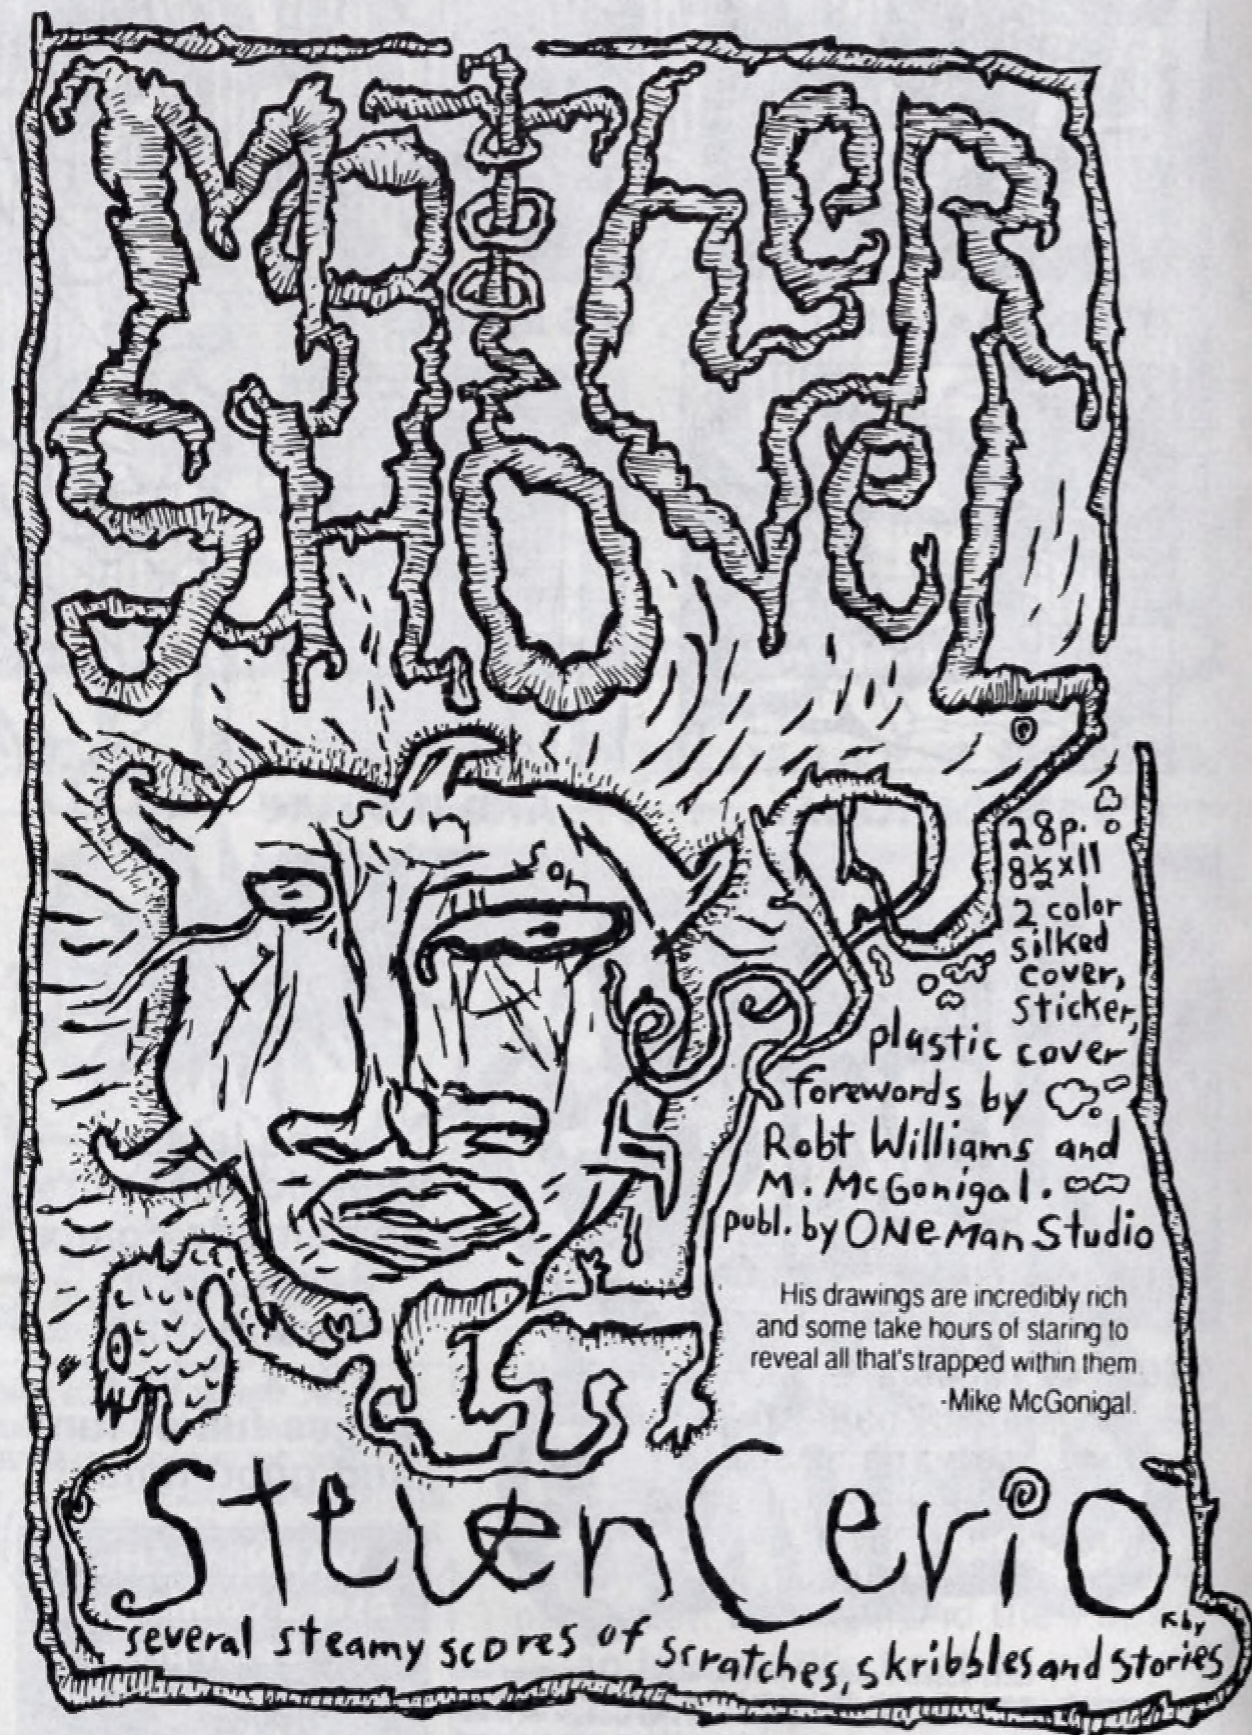 MOTHER
SHOVEL
sun
son
28p.
8½x11
2 color
silked
cover,
sticker,
plastic cover
forewords by
Robt Williams and
M. McGonigal.
publ. by ONe Man Studio
His drawings are incredibly rich
and some take hours of staring to
reveal all that's trapped within them
-Mike McGonigal.
Steven Cerio
several steamy scores of scratches, skribbles and stories